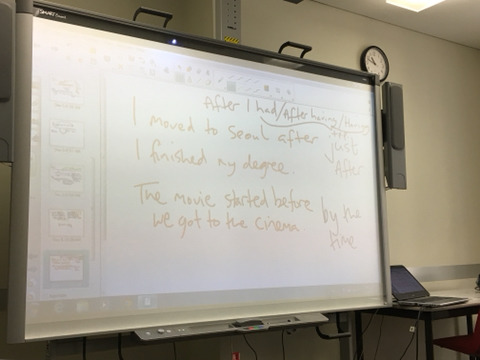 After I had/After having/Having
I moved to Seoul after just
I finished my degree. After
The movie started before by the
we got to the cinema time